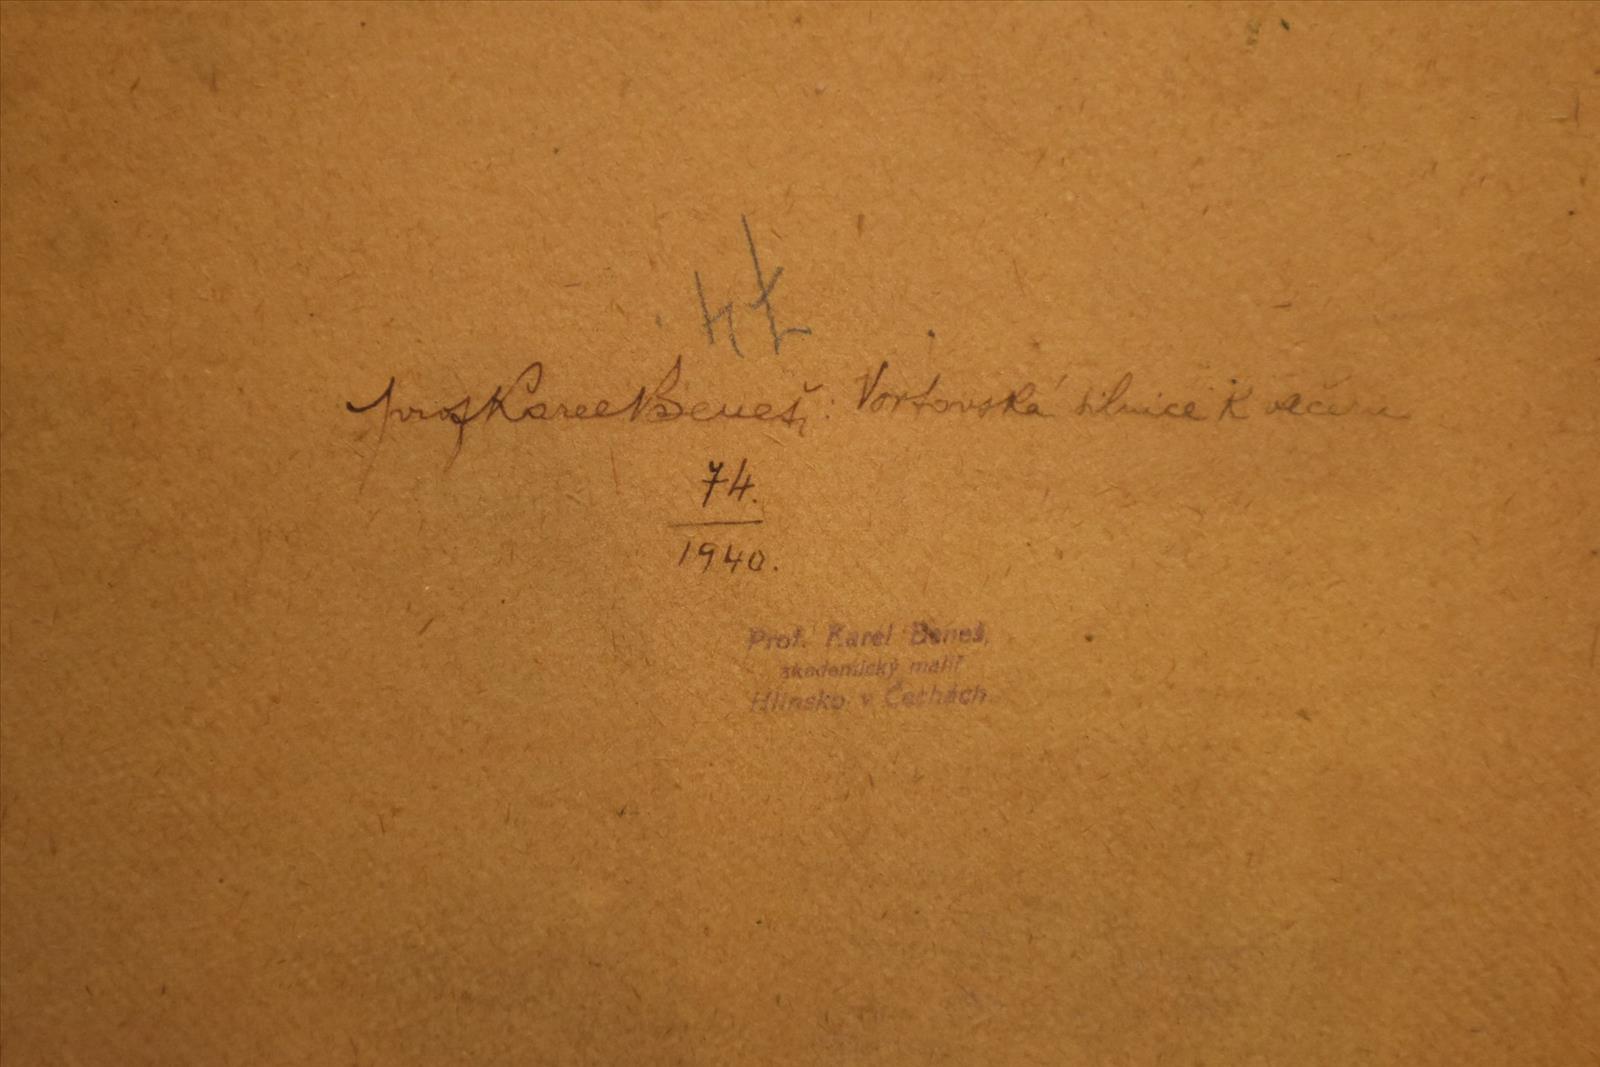 prof Karel Beneš: Vortovská silnice k večeru
74.
1940.
Prof. Karel Beneš,
akademický malíř
Hlinsko v Čechách